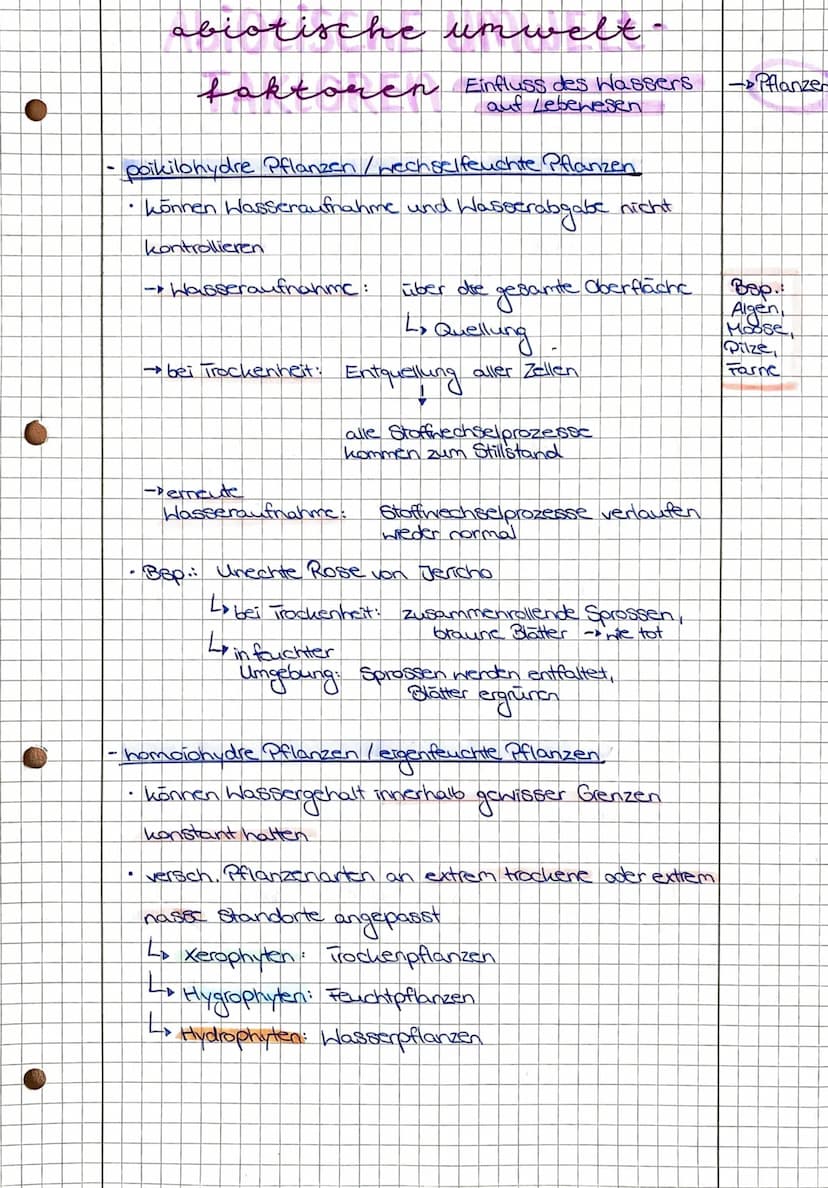 abiotische umwelt-
faktoren Einfluss des Wassers → Pflanzen
auf Lebewesen
- poikilohydre Pflanzen / wechselfeuchte Pflanzen
· können Wasseraufnahme und Wasserabgabe nicht
kontrollieren
→ Wasseraufnahme: über die gesamte Oberfläche
↳ Quellung
Bsp.:
Algen,
Moose,
Pilze,
Farne
→ bei Trockenheit: Entquellung aller Zellen
↓
alle Stoffwechselprozesse
kommen zum Stillstand
→ erneute
Wasseraufnahme: Stoffwechselprozesse verlaufen
weder normal
· Bsp.: Unechte Rose von Jericho
↳ bei Trockenheit: zusammenrollende Sprossen,
braune Blätter → wie tot
↳ in feuchter
Umgebung: Sprossen werden entfaltet,
Blätter ergrünen
- homoiohydre Pflanzen / eigenfeuchte Pflanzen
· können Wassergehalt innerhalb gewisser Grenzen
konstant halten
· versch. Pflanzenarten an extrem trockene oder extrem
nasse Standorte angepasst
↳ Xerophyten: Trockenpflanzen
↳ Hygrophyten: Feuchtpflanzen
↳ Hydrophyten: Wasserpflanzen